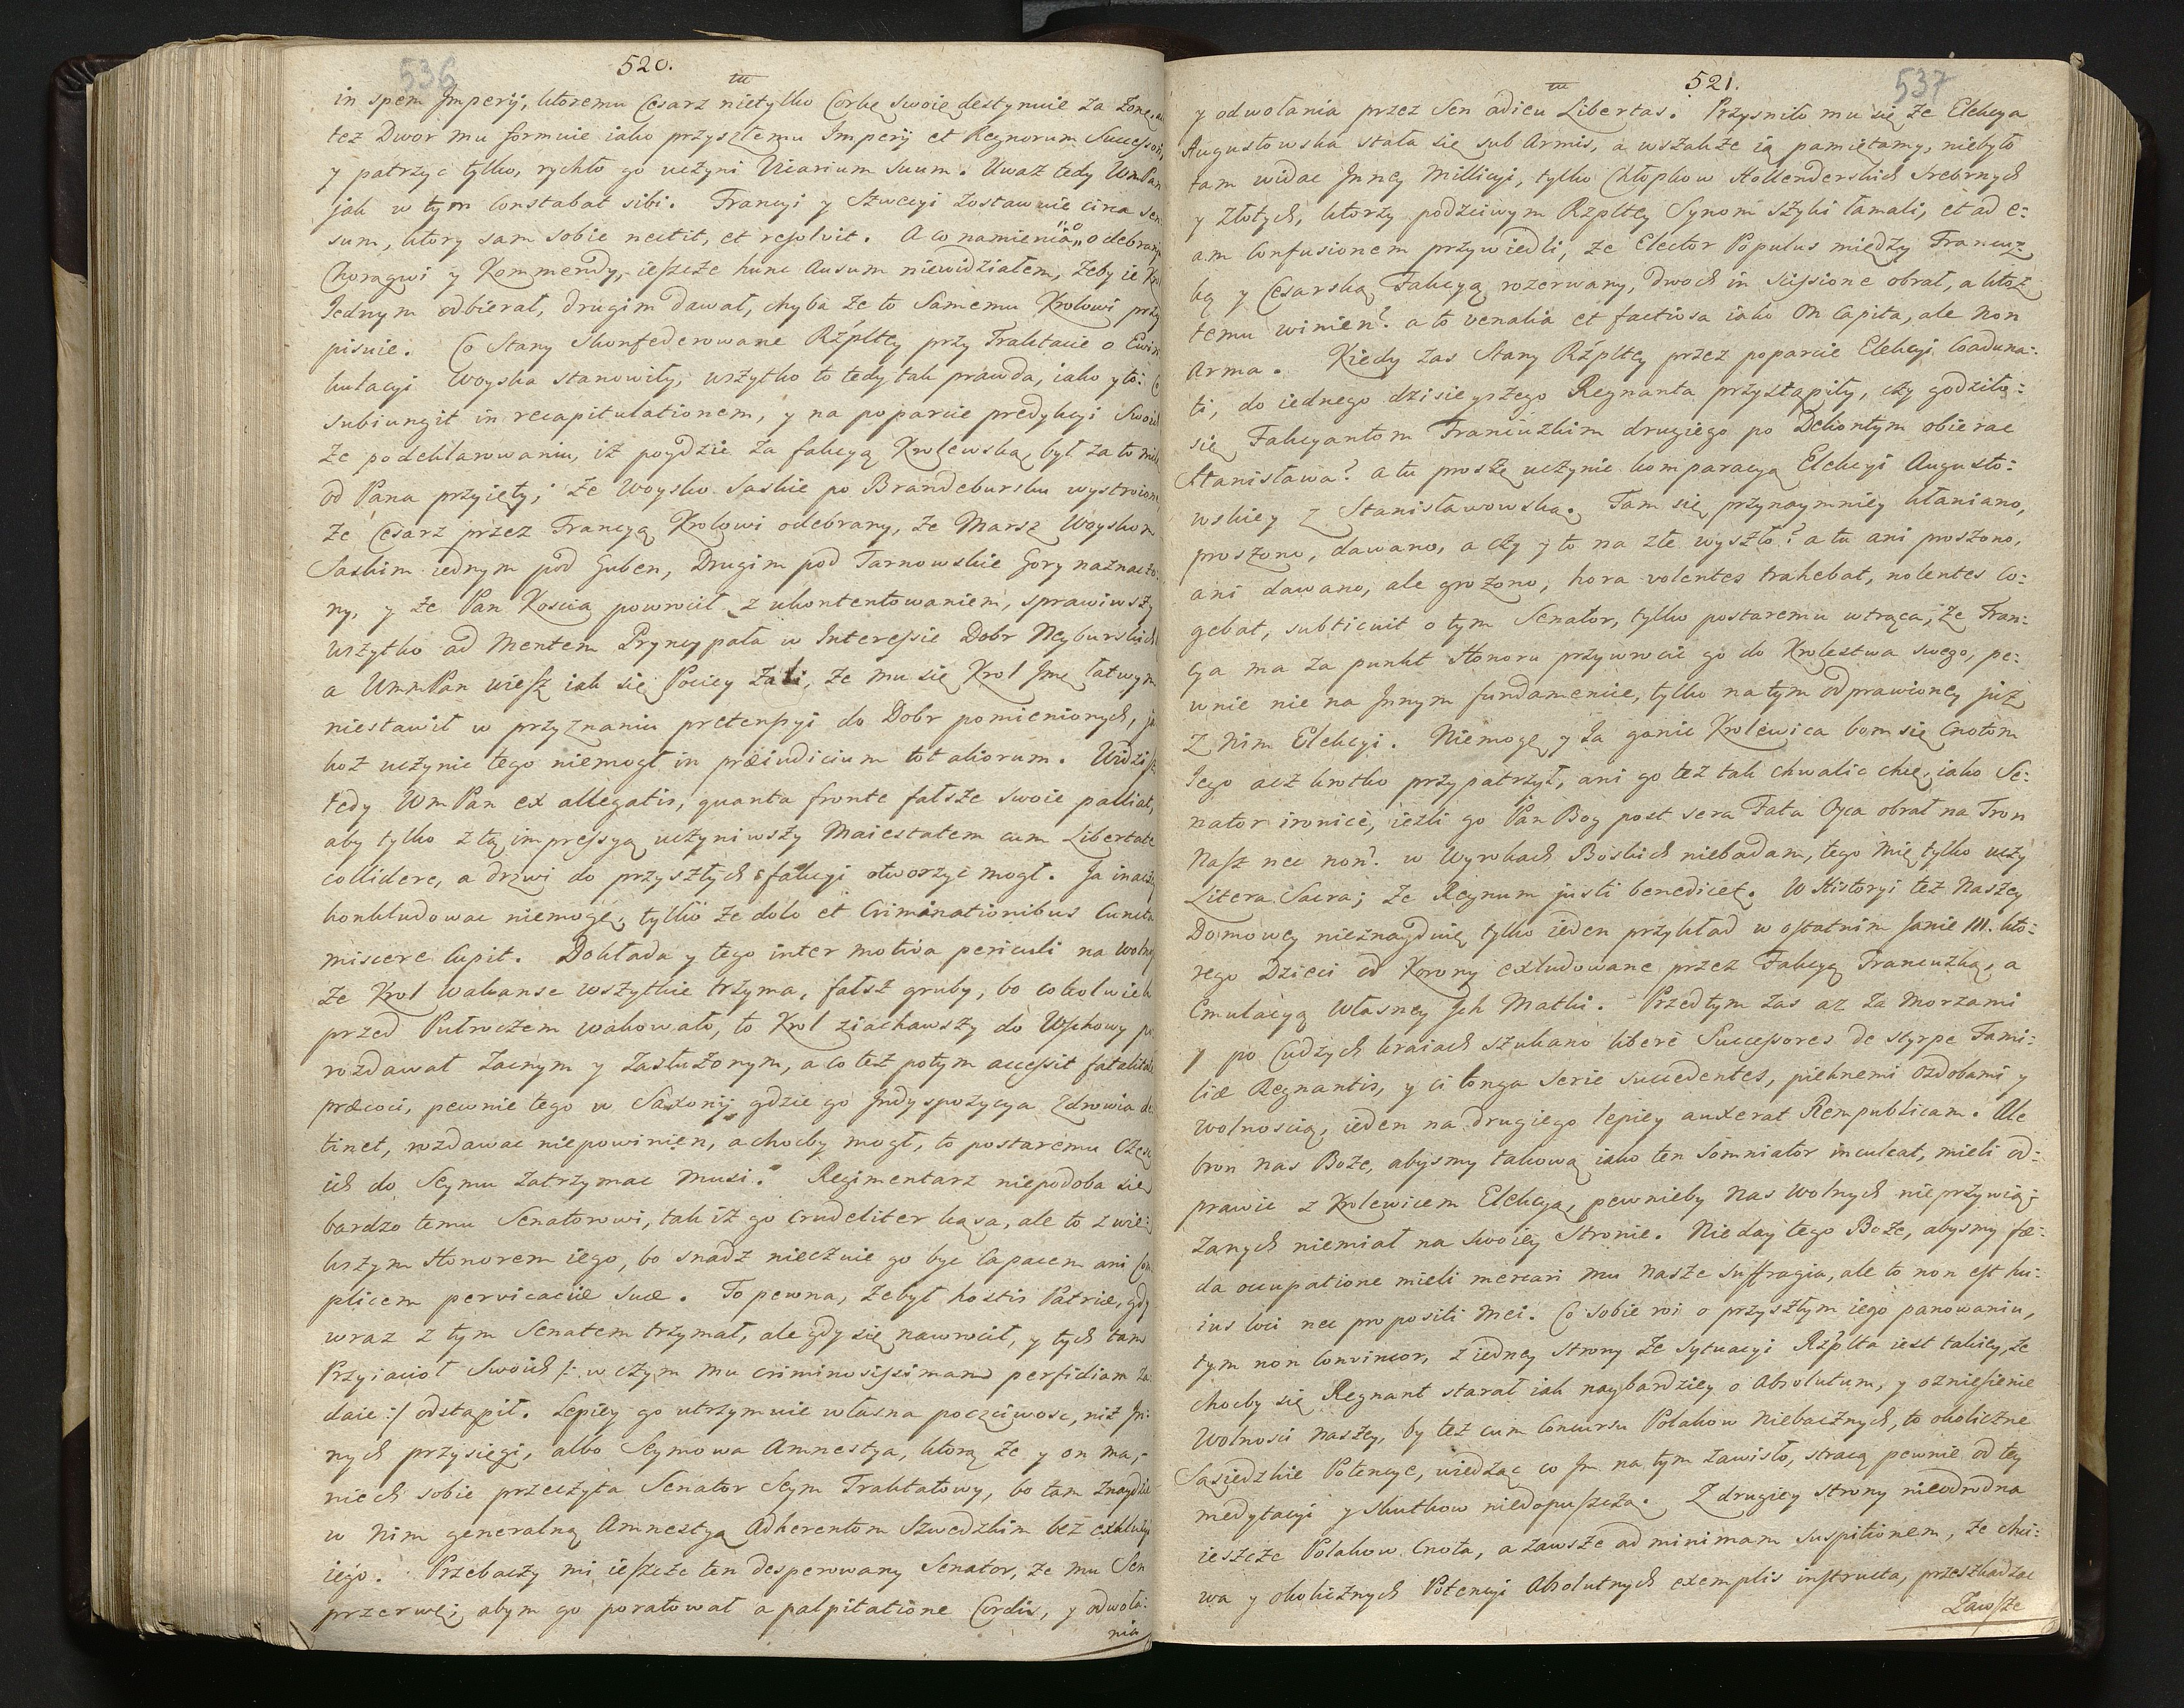 536
520.
in spem Imperij, ktoremu Cesarz nietylko Corkę swoię destynuie za Zonę,
tez Dwor mu formuie iako przyszłemu Imperij et Regnorum Successori,
y patrzyc tylko, rychło go uczyni Vicarium suum. Uwaz tedy WmPan
jak w tym constabat sibi. Francyi y Szwecyi zostawuie circa sen
sum, ktory sam sobie nectit, et resolvit. A co namienia o odebraniu
Chorągwi y Kommendy, ieszcze hunc ausum niewidziałem, zeby ie Krol
Jednym odbierał, drugim dawał, chyba ze to Samemu Krolowi przy
pisuie. Co Stany Skonfederowane Rzpltey przy Traktacie o Ewin
kulacyi Woyska stanowiły, wszytko to tedy tak prawda, iako y to: Co
subiungit in recapitulationem, y na poparcie predykcyi swoich
Ze podeklarowaniu, iz poydzie za fakcyą Krolewską, był za to mile
od Pana przyięty; Ze Woysko Saskie po Brandebursku wystroione
Ze Cesarz przez Francyą Krolowi odebrany, ze Marsz Woyskom
Saskim iednym pod Guben, Drugim pod Tarnowskie Gory naznaczo:
ny, y ze Pan Koscia powrocił z ukontentowaniem, sprawiwszy
wszytko ad mentem Pryncypała w Interessie Dobr Neyburskich
a WmPan wiesz iak się Pociey zali, ze mu się Krol Jmc łatwym
niestawił w przyznaniu pretensyi do Dobr pomienionych, ja
koz uczynic tego niemogł in præiudicium tot aliorum. Widzisz
tedy WmPan ex allegatis, quanta fronte fałsze swoie palliat,
aby tylko z tą impressyą uczyniwszy Maiestatem cum Libertate
collidere, a drzwi do przyszłych fakcyi otworzyc mogł. Ja inaczey
konkludowac niemogę, tylko ze dolo et Criminationibus Cuncta
miscere cupit. Dokłada y tego inter motiva periculi na wolność
Ze Krol wakanse wszytkie trzyma, fałsz gruby, bo cokolwiek
przed Pułroczem wakowało, to Krol ziachawszy do Wschowy po
rozdawał zacnym y zasłuzonym, a co tez potym accessit fatalitate
præcoci, pewnie tego w Saxonij gdzie go Indyspozycya Zdrowia de
tinet, rozdawac niepowinien, a chocby mogł, to postaremu częsc
ich do Seymu zatrzymac musi. Regimentarz niepodoba się
bardzo temu Senatorowi, tak iz go crudeliter kąsa, ale to z wię:
kszym Honorem iego, bo snadz nieczuie go byc capacem ani Com
plicem pervicaciæ suæ. To pewna, ze był hostis Patriæ, gdy
wraz z tym Senatem trzymał, ale gdy się nawrocił, y tych tam
Przyiacioł swoich /: w czym mu criminosissimam perfidiam za:
daie :/ odstąpił. Lepiey go utrzymuie własna poczciwosc, niz In:
nych przysięgi, albo Seymowa Amnestya, ktorą ze y on ma,
niech sobie przeczyta Senator Seym Traktatowy, bo tam znaydzie
w nim generalną Amnestyą Adherentom Szwedzkim bez exkluzyi
iego. Przebaczy mi ieszcze ten desperowany Senator, ze mu Sen
przerwę; abym go poratował a palpitatione Cordis, y odwoła:
nia
537
521.
y odwołania przez Sen adieu Libertas. Przysniło mu się ze Elekcya
Augustowska stała się sub Armis, a wszakze ią pamiętamy, niebyło
tam widac Inney Millicyi, tylko Chłopkow Hollenderskich srebrnych
y złotych, ktorzy podzciwym Rzpltey Synom szyki łamali, et ad e:
am confusionem przywiedli, ze Elector Populus między Francuz:
ką y Cesarską Fakcyą rozerwany, dwoch in scissione obrał, a ktoz
temu winien? a to venalia et factiosa iako on Capita, ale non
Arma. Kiedy zas Stany Rzpltey przez poparcie Elekcyi Coaduna:
ti, do iednego dzisieyszego Regnanta przystąpiły, czy godziło:
się Fakcyantom Francuzkim drugiego po Dekontym obierac
Stanisława? a tu proszę uczynic komparacyą Elekcyi Augusto:
wskiey z Stanisławowską. Tam się przynaymniey kłaniano,
proszono, dawano, a czy y to na złe wyszło? a tu ani proszono,
ani dawano, ale grozono, hora volentes trahebat, nolentes co:
gebat, subticuit o tym Senator, tylko postaremu wtrąca, ze Fran:
cya ma za punkt Honoru przywrocic go do Krolestwa swego, pe:
wnie nie na Innym fundamencie, tylko na tym odprawioney juz
z nim Elekcyi. Niemogę y Ja ganic Krolewica bom się cnotom
Jego acz krotko przypatrzył, ani go tez tak chwalic chcę, iako Se:
nator ironicè, iezli go Pan Bog post sera Fata Oyca obrał na Tron
Nasz nec non? w Wyrokach Boskich niebadam, tego mię tylko uczy
Litera Sacra; ze Regnum justi benedicet. W Historyi tez Naszey
Domowey nieznayduię tylko ieden przykład w ostatnim Janie III. kto:
rego Dzieci od Korony exkludowane przez Fakcyą Francuzką, a
Emulacyą własney Jch Matki. Przedtym zas az za morzami
y po Cudzych kraiach szukano liberè Successores de styrpe Fami:
liæ Regnantis, y ci longa serie succedentes, pięknemi ozdobami y
wolnoscią, ieden na drugiego lepiey auxerat Rempublicam. Ale
bron nas Boze, abysmy takową iako ten Somniator inculcat, mieli od:
prawic z Krolewicem Elekcyą, pewnieby Nas wolnych nieprzywią:
zanych niemiał na swoiey Stronie. Nieday tego Boze, abysmy fæ:
da occupatione mieli mercari mu nasze suffragia, ale to non est hu:
ius loci nec propositi mei. Co sobie roi o przyszłym iego panowaniu,
tym non convincor, z iedney strony ze sytuacyi Rzplta iest takiey, ze
chocby się Regnant starał iak naybardziey o Absolutum, y o zniesienie
Wolnosci naszey, by tez cum Concursu Polakow niebacznych, to okoliczne
Sąsiedzkie Potencye, wiedząc co Im na tym zawisło, stracą pewnie od tey
medytacyi y skutkow niedopuszczą. Z drugiey strony nieodrodna
ieszcze Polakow Cnota, a zawsze ad minimam suspitionem, ze chi:
wa y okolicznych Potencyi Absolutnych exemplis instructa, przeszkadzac
Zawsze